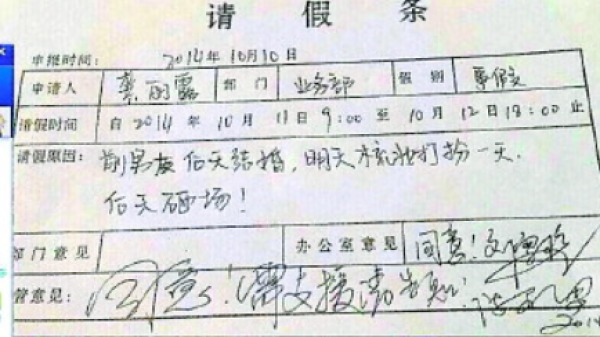 请假条
申报时间: 2014年10月10日
申请人 龚丽露 部门 业务部 假别 事假
请假时间 自2014年10月11日9:00至10月12日18:00止
请假原因: 前男友后天结婚,明天梳妆打扮一天.
后天砸场!
部门意见 办公室意见 同意!
管意见: 同意!需支援请告知!
201